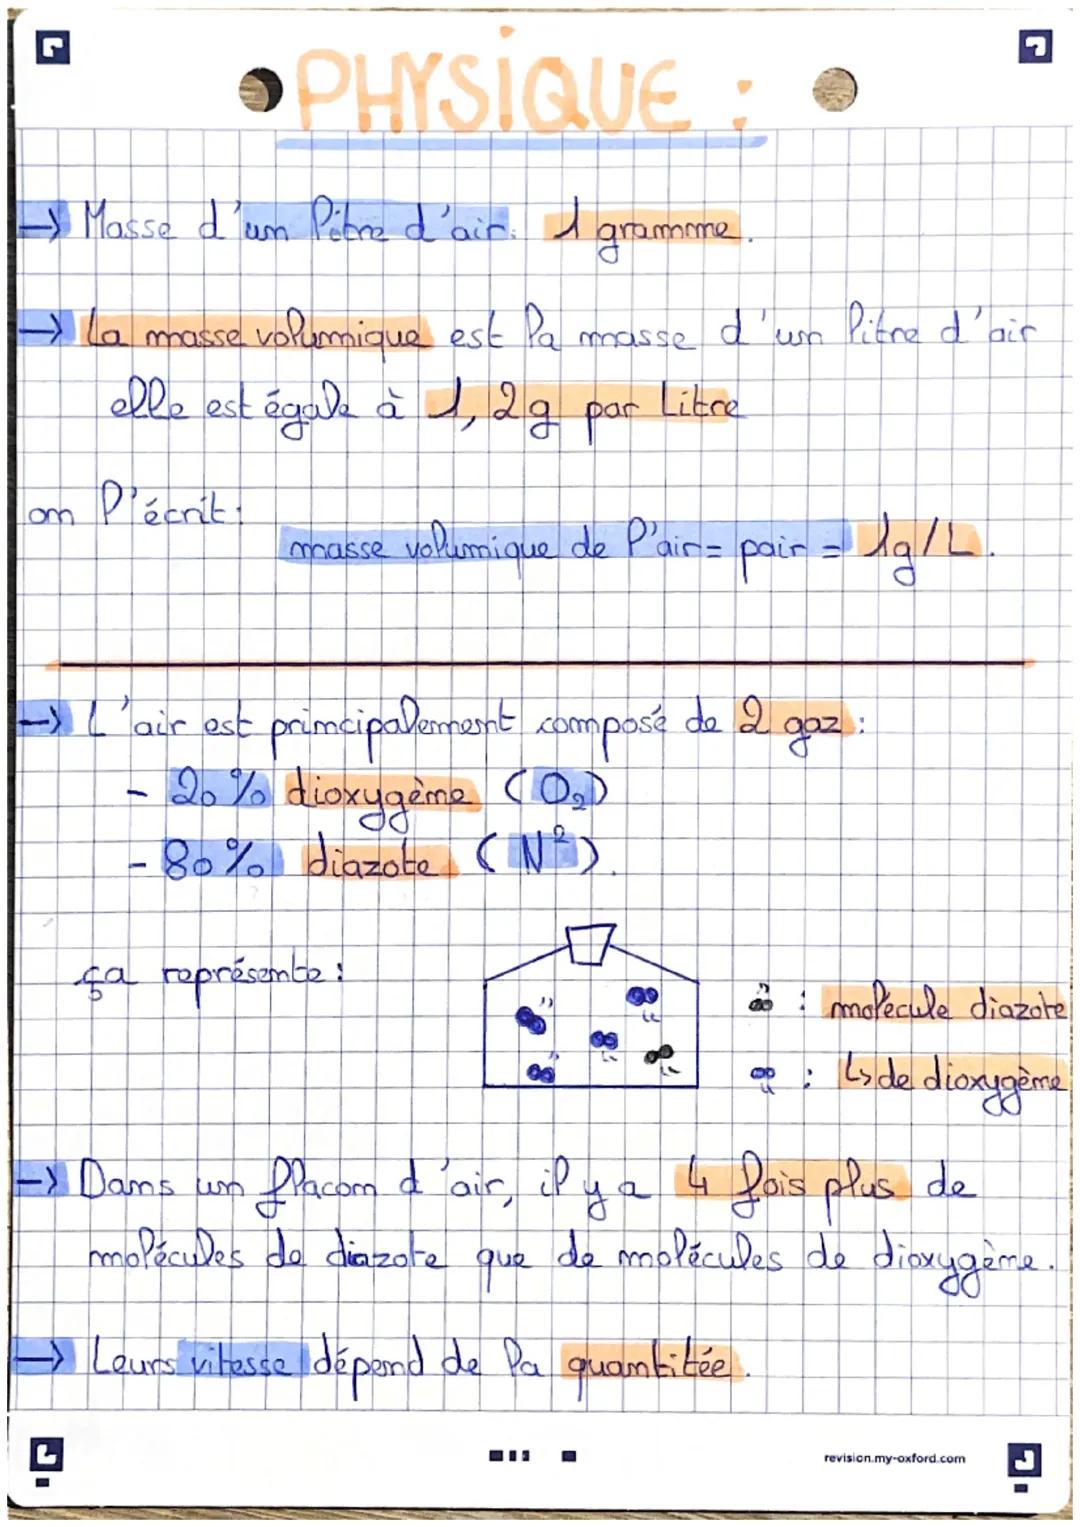 PHYSIQUE :
→ Masse d'un litre d'air: 1 gramme.
→ La masse volumique est la masse d'un litre d'air
elle est égale à 1,2g par Litre
on l'écrit:
masse volumique de l'air = pair = 1g/L.
→ L'air est principalement composé de 2 gaz :
- 20% dioxygène (O₂)
- 80% diazote (N²).
ça représente :
: molécule diazote
: ↳ de dioxygène
→ Dans un flacon d'air, il y a 4 fois plus de
molécules de diazote que de molécules de dioxygène.
→ Leurs vitesse dépend de la quantitée.
revision.my-oxford.com